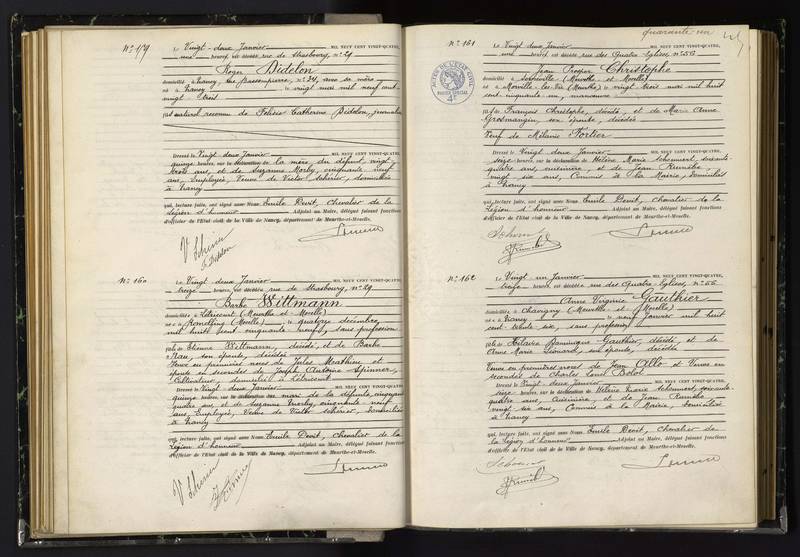 N° 159
Le Vingt-deux Janvier MIL NEUF CENT VINGT-QUATRE,
une heure, est décédé rue de Strasbourg, n° 29
Roger Didelon
domicilié à Nancy, rue n° 34, avec sa mère,
né à Nancy le vingt mai mil neuf cent
vingt-trois
fils naturel reconnu de Félicie Catherine Didelon, journalière
Dressé le Vingt-deux Janvier MIL NEUF CENT VINGT-QUATRE,
quinze heures, sur la déclaration de la mère du défunt, vingt-
trois ans, et de Suzanne Morly, cinquante neuf
ans, Employée, Veuve de Victor Schérier, domiciliées
à Nancy
qui, lecture faite, ont signé avec Nous Emile Devit, Chevalier de la
Légion d'honneur Adjoint au Maire, délégué faisant fonctions
d'officier de l'Etat civil de la Ville de Nancy, département de Meurthe-et-Moselle.
Didelon
N° 160
Le Vingt deux Janvier MIL NEUF CENT VINGT-QUATRE,
treize heures, est décédée rue de Strasbourg, n° 29
Barbe Wittmann
domiciliée à Létricourt (Meurthe et Moselle)
née à (Moselle) le quatorze décembre
mil huit cent cinquante neuf, sans profession
fille de Etienne Wittmann, décédé, et de Barbe
son épouse, décédée
Veuve en premières noces de Jules Mathieu et
épouse en secondes de Joseph Antoine Spinner,
Cultivateur, domicilié à Létricourt
Dressé le Vingt deux Janvier MIL NEUF CENT VINGT-QUATRE,
quinze heures, sur la déclaration du mari de la défunte, cinquante
quatre ans, et de Suzanne Morly, cinquante neuf
ans, Employée, Veuve de Victor Schérier, domiciliés
à Nancy
qui, lecture faite, ont signé avec Nous Emile Devit, Chevalier de la
Légion d'honneur Adjoint au Maire, délégué faisant fonctions
d'officier de l'Etat civil de la Ville de Nancy, département de Meurthe-et-Moselle.
quarante-un
N° 161
Le Vingt deux Janvier MIL NEUF CENT VINGT-QUATRE,
une heure, est décédé rue des Quatre Eglises, n° 55
Jean Prosper Christophe
domicilié à (Meurthe et Moselle)
né à Morville-les-Vic (Meurthe) le vingt trois mai mil huit
cent cinquante un, manœuvre
fils de François Christophe, décédé, et de Marie Anne
Grosmangin, son épouse, décédée
Veuf de Mélanie Vortier
Dressé le Vingt deux Janvier MIL NEUF CENT VINGT-QUATRE,
seize heures, sur la déclaration de Hélène Marie soixante-
quatre ans, et de Jean
vingt six ans, Commis à la Mairie, domiciliés
à Nancy
qui, lecture faite, ont signé avec Nous Emile Devit, Chevalier de la
Légion d'honneur Adjoint au Maire, délégué faisant fonctions
d'officier de l'Etat civil de la Ville de Nancy, département de Meurthe-et-Moselle.
N° 162
Le Vingt un Janvier MIL NEUF CENT VINGT-QUATRE,
treize heures, est décédée rue des Quatre-Eglises, n° 55
Anne Virginie Gauthier
domiciliée à Chavigny (Meurthe et Moselle)
née à Nancy le neuf janvier mil huit
cent trente six, sans profession
fille de Hilaire Dominique Gauthier, décédé, et de
Anne Marie Léonard, son épouse, décédée
Veuve en premières noces de Jean Allo et Veuve en
secondes de Charles Louis Bolot
Dressé le Vingt deux Janvier MIL NEUF CENT VINGT-QUATRE,
seize heures, sur la déclaration de Hélène Marie soixante-
quatre ans, et de Jean
vingt-six ans, Commis à la Mairie, domiciliés
à Nancy
qui, lecture faite, ont signé avec Nous Emile Devit, Chevalier de
la Légion d'honneur Adjoint au Maire, délégué faisant fonctions
d'officier de l'Etat civil de la Ville de Nancy, département de Meurthe-et-Moselle.